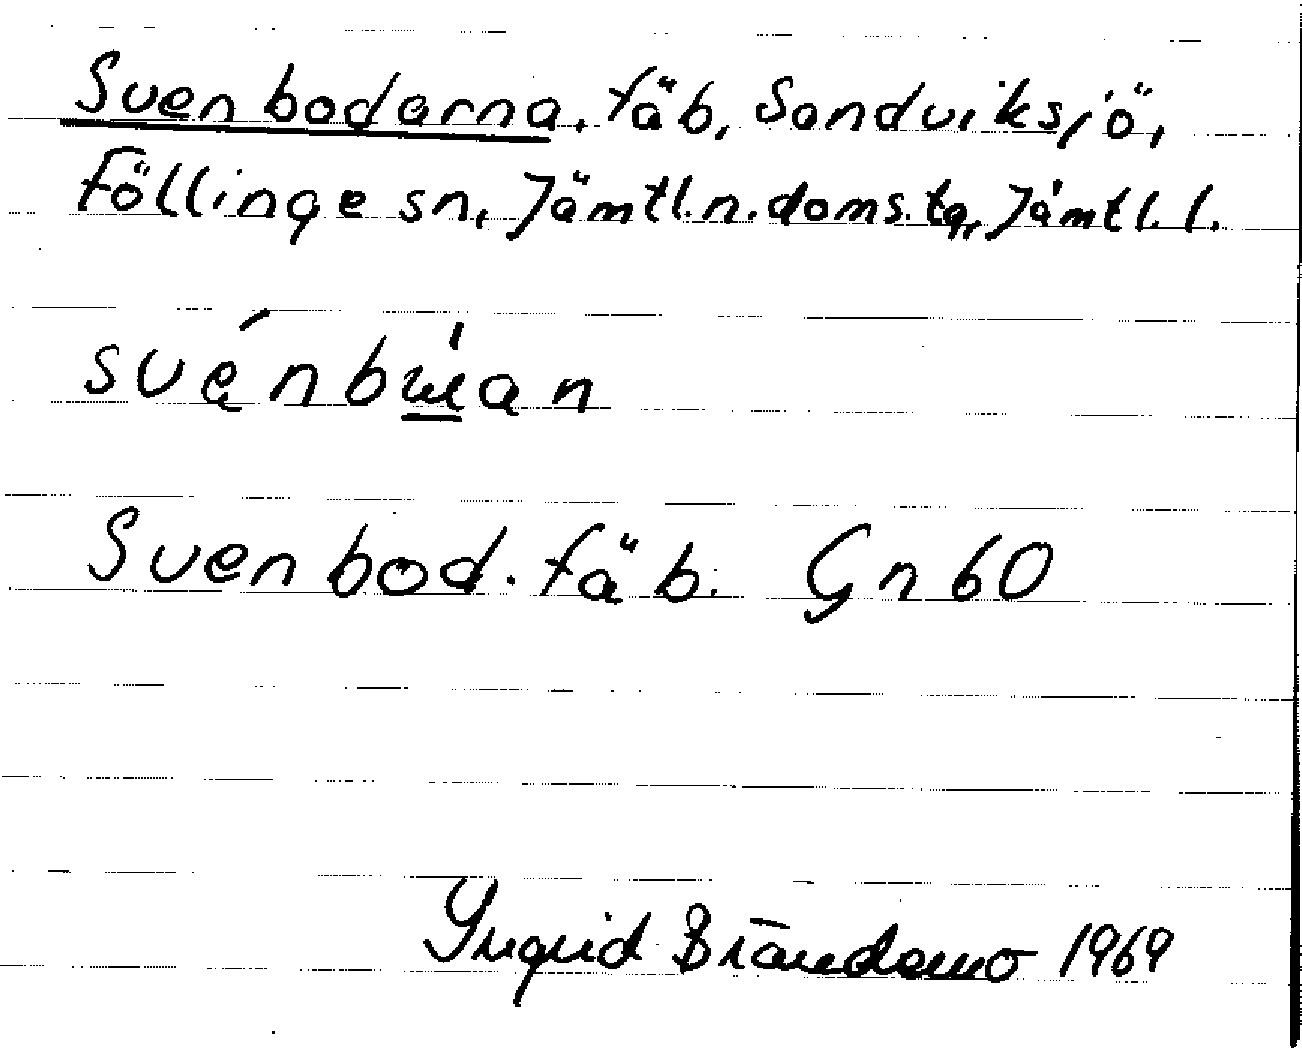 Svenbodarna, fäb, Sandviksjö,
Föllinge sn, Jämtl.n.doms.tg, Jämtl.l.
Svenbod. fäb. Gn 60
Ingrid Brändemo 1969